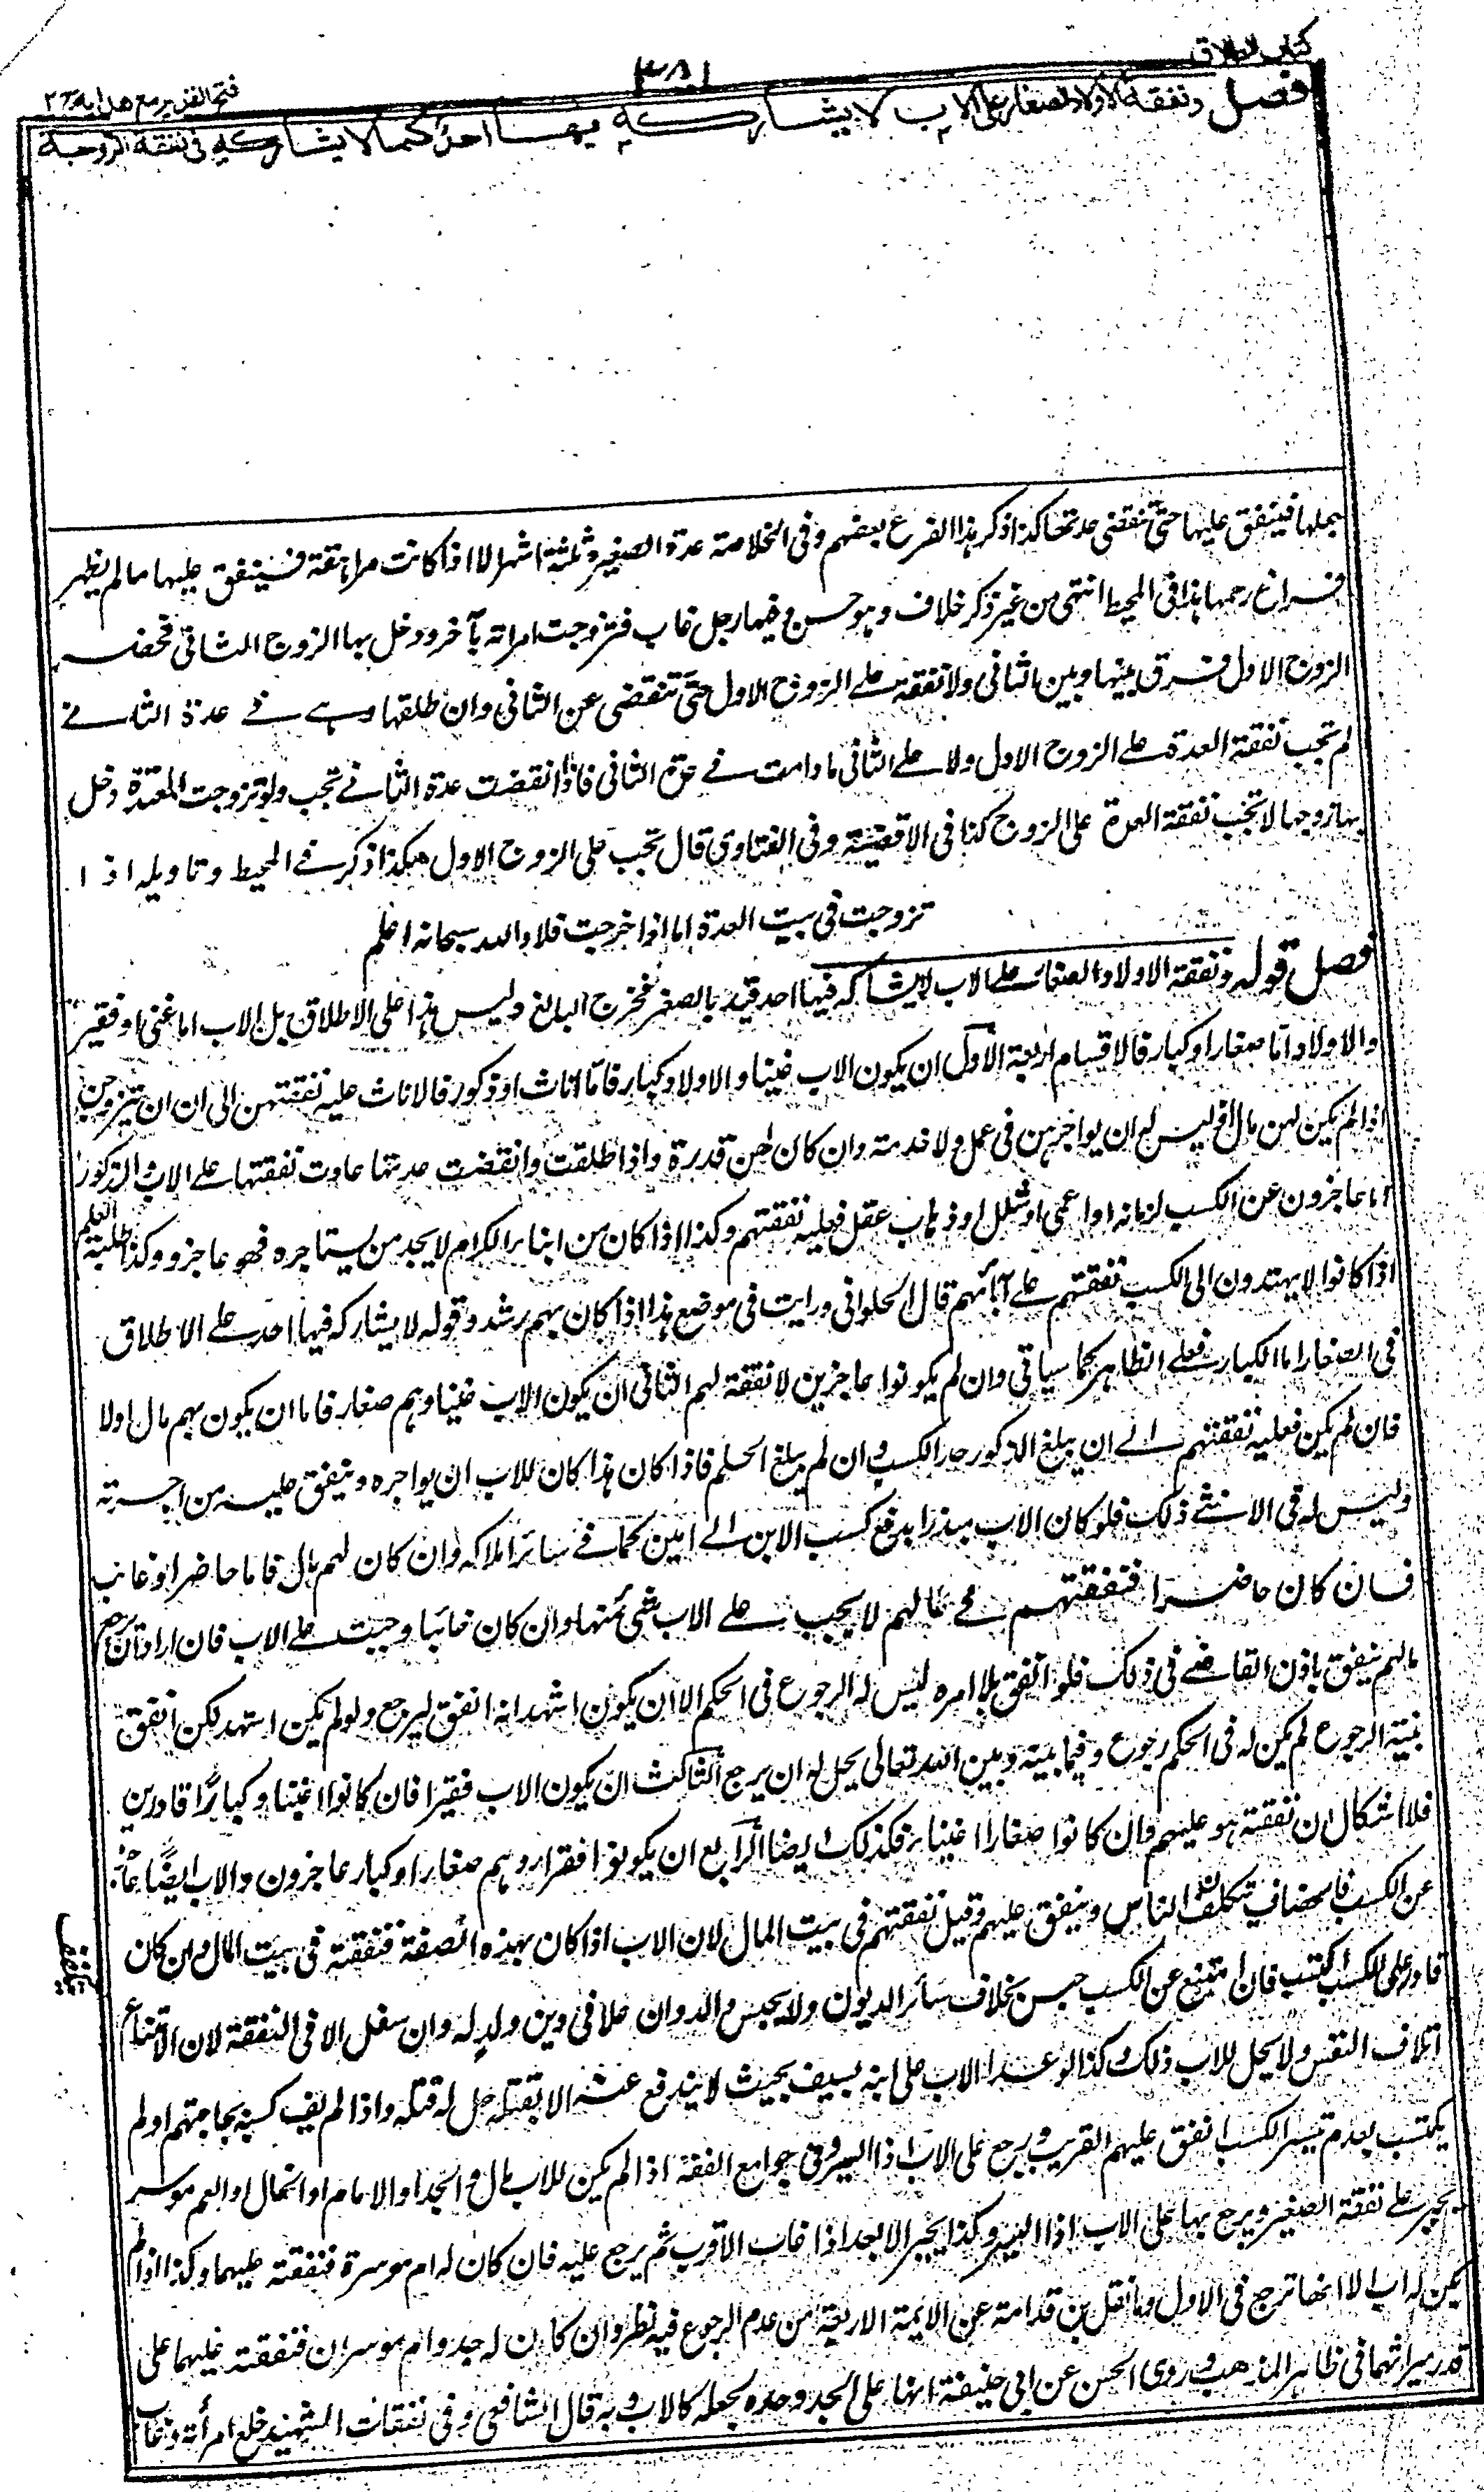 كتاب الطلاق
٣٨١
فتح القدير مع هداية ج٢
فصل ونفقة الاولاد الصغار على الاب لا يشاركه فيها احد كما لا يشاركه في نفقة الزوجة
بحبلها فينفق عليها حتى تنقضى عدتها كذا ذكر هذا الفرع بعضهم وفى الخلاصة عدة الصغيرة ثلثة اشهر الا اذا كانت مراهقة فينفق عليها مالم يظهر
فراغ رحمها هذا فى المحيط انتهى من غير ذكر خلاف وهو حسن وفيها رجل غاب فتزوجت امراته بآخر ودخل بها الزوج الثانى فحضر
الزوج الاول فرق بينها وبين الثانى ولا نفقة على الزوج الاول حتى تنقضى عن الثانى وان طلقها وهى فى عدة الثانى
لم تجب نفقة العدة على الزوج الاول ولا على الثانى ما دامت فى الثانى فاذا انقضت عدة الثانى تجب ولو تزوجت المعتدة دخل
بها زوجها لا تجب نفقة العدة على الزوج كذا فى الاقضية وفى الفتاوى قال تجب على الزوج الاول هكذا ذكر فى المحيط وتاويله اذا
تزوجت فى بيت العدة اما اذا خرجت فلا والله سبحانه اعلم
فصل قوله ونفقة الاولاد الصغار على الاب لا يشاركه فيها احد قيد بالصغر فخرج البالغ وليس هذا على الاطلاق بل الاب اما غنى او فقير
والاولاد اما صغار او كبار فالاقسام اربعة الاول ان يكون الاب غنيا والاولاد كبار فاما اناث او ذكور فالاناث عليه نفقتهن الى ان يتزوجن
اذا لم يكن لهن مال وليس له ان يواجرهن فى عمل ولا خدمة وان كان لهن قدرة واذا طلقت وانقضت عدتها عادت نفقتها على الاب والذكور
اما عاجزون عن الكسب لزمانة او اعمى او شلل او ذهاب عقل فعليه نفقتهم وكذا اذا كان من ابناء الكرام لا يجد من يستاجره فهو عاجز وكذا طلبة العلم
اذا كانوا لا يهتدون الى الكسب نفقتهم على آبائهم قال الحلوانى ورايت فى موضع هذا اذا كان بهم رشد وقوله لا يشاركه فيها احد على الاطلاق
فى الصغار اما الكبار فعلى الظاهر كما سياتى وان لم يكونوا عاجزين لا نفقة لهم الثانى ان يكون الاب غنيا وهم صغار فاما ان يكون لهم مال اولا
فان لم يكن فعليه نفقتهم الى ان يبلغ الذكور حد الكسب وان لم يبلغ الحلم فاذا كان هذا كان للاب ان يواجره وينفق عليه من اجرته
وليس له فى الانثى ذلك فلو كان الاب مبذرا يدفع كسب الابن الى امين كما فى سائر املاكه وان كان لهم مال فاما حاضر او غائب
فان كان حاضرا فنفقتهم فى مالهم لا يجب على الاب شئ منها وان كان غائبا وجبت على الاب فان اراد ان يرجع
مالهم ينفق باذن القاضى فى ذلك فلو انفق بلا امره ليس له الرجوع فى الحكم الا ان يكون اشهد انه انفق ليرجع ولو لم يكن اشهد لكن انفق
بنية الرجوع لم يكن له فى الحكم رجوع وفيما بينه وبين الله تعالى يحل له ان يرجع الثالث ان يكون الاب فقيرا فان كانوا اغنياء وكبارا قادرين
فلا اشكال ان نفقته هو عليهم وان كانوا صغارا اغنياء فكذلك ايضا الرابع ان يكونوا فقراء وهم صغار او كبار عاجزون والاب ايضا عاجز
عن الكسب فالخصاف يتكفف الناس وينفق عليهم وقيل نفقتهم فى بيت المال لان الاب اذا كان بهذه الصفة فنفقته فى بيت المال وان كان
قادرا على الكسب اكتسب فان امتنع عن الكسب حبس بخلاف سائر الديون ولا يحبس والد وان علا فى دين ولد له وان سفل الا فى النفقة لان الامتناع
اتلاف النفس ولا يحل للاب ذلك وكذا لو عدا الاب على ابنه بسيف بحيث لا يندفع عنه الا بقتله حل له قتله واذا لم يف كسبه بحاجتهم او لم
يكتسب لعدم تيسر الكسب انفق عليهم القريب ورجع على الاب اذا ايسر وفى جوامع الفقه اذا لم يكن للاب مال والجد او الام او الخال او العم موسر
يجبر على نفقة الصغير ويرجع بها على الاب اذا ايسر وكذا يجبر الابعد اذا غاب الاقرب ثم يرجع عليه فان كان له ام موسرة فنفقته عليها وكذا اذا لم
يكن له اب الا انها ترجع فى الاول وما نقل بن قدامة عن الايمة الاربعة من عدم الرجوع فيه نظر وان كان له جد وام موسران فنفقته عليهما على
قدر ميراثهما فى ظاهر المذهب وروى الحسن عن ابى حنيفة انها على الجد وحده لجعله كالاب وبه قال الشافعى وفى نفقات الشهيد خلع امرأته وغاب